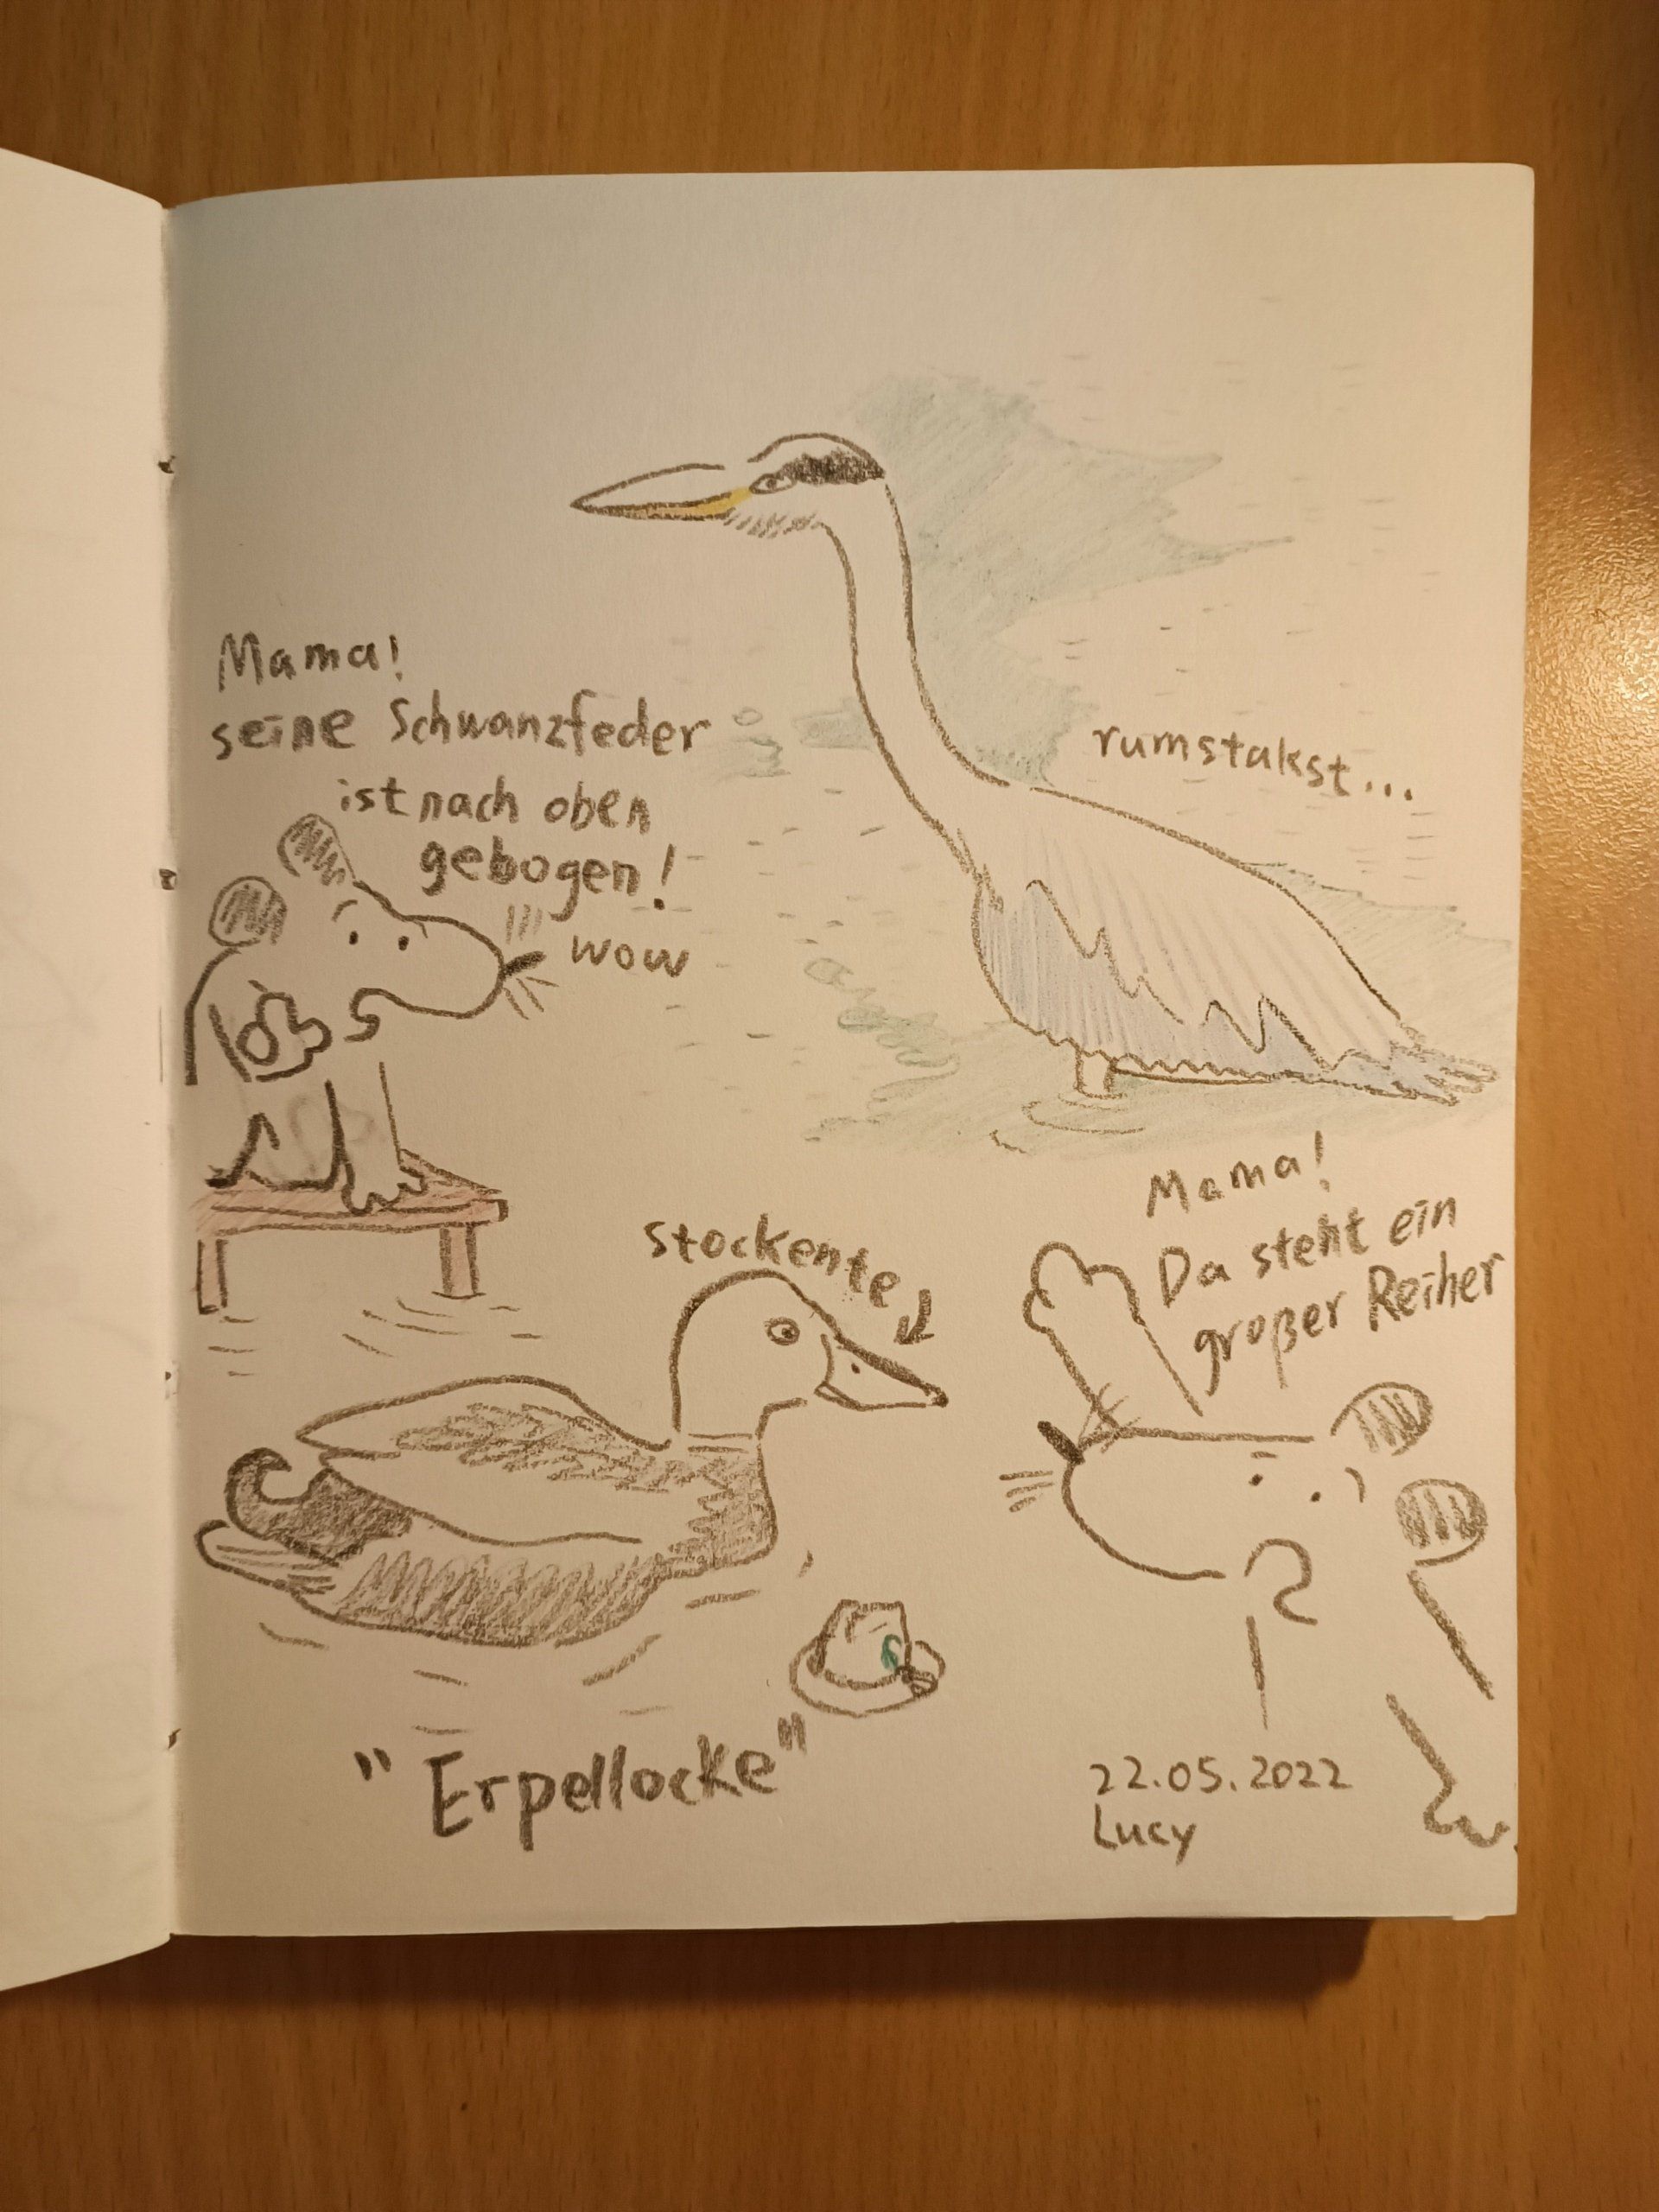 Mama!
seine Schwanzfeder
ist nach oben
gebogen!
wow
rumstakst...
Mama!
Da steht ein
großer Reiher
Stockente
"Erpellocke"
22.05.2022
Lucy